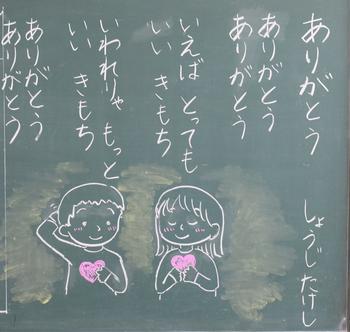 ありがとう
しょうじたけし
ありがとう
ありがとう
いえば とっても
いい きもち
いわれりゃ もっと
いい きもち
ありがとう
ありがとう